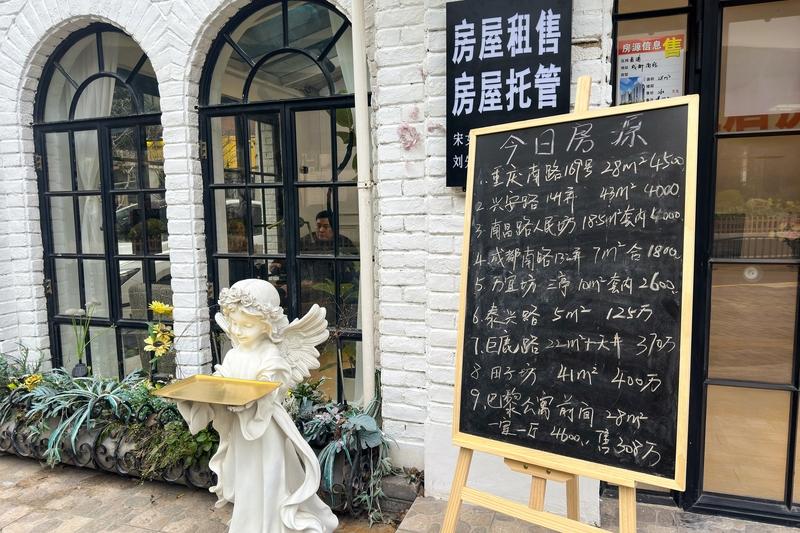 房屋租售
房屋托管
宋
刘
房源信息 售
今日房源
1. 重庆南路169号 28m² 4500
2. 兴安路141弄 43m² 4000
3. 南昌路人民坊 18.5m² 套内 4000
4. 成都南路132弄 7m² 合 1800
5. 万宜坊 三亭 10m² 套内 2600
6. 泰兴路 5m² 125万
7. 巨鹿路 22m²+天井 370万
8. 田子坊 41m² 400万
9. 巴黎公寓 前间 28m²
一室一厅 4600. 售 308万